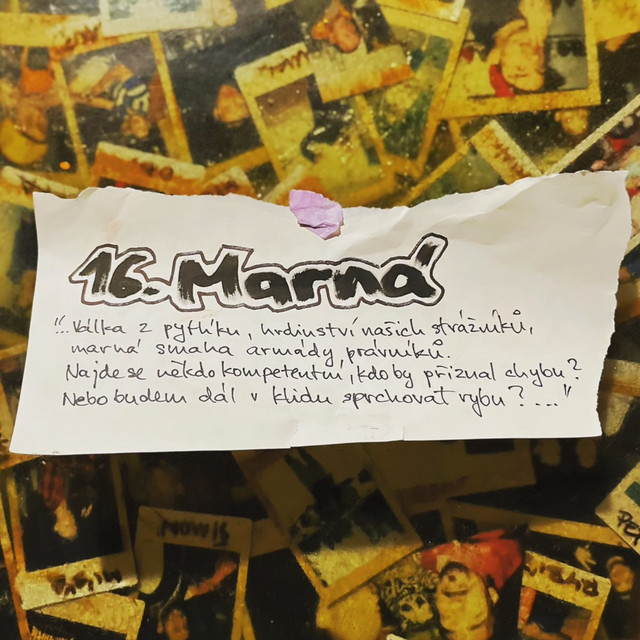 16. Marná
"... Válka z pytlíku, hrdinství našich strážníků,
marná snaha armády právníků.
Najde se někdo kompetentní, kdo by přiznal chybu?
Nebo budem dál v klidu sprchovat rybu? ..."